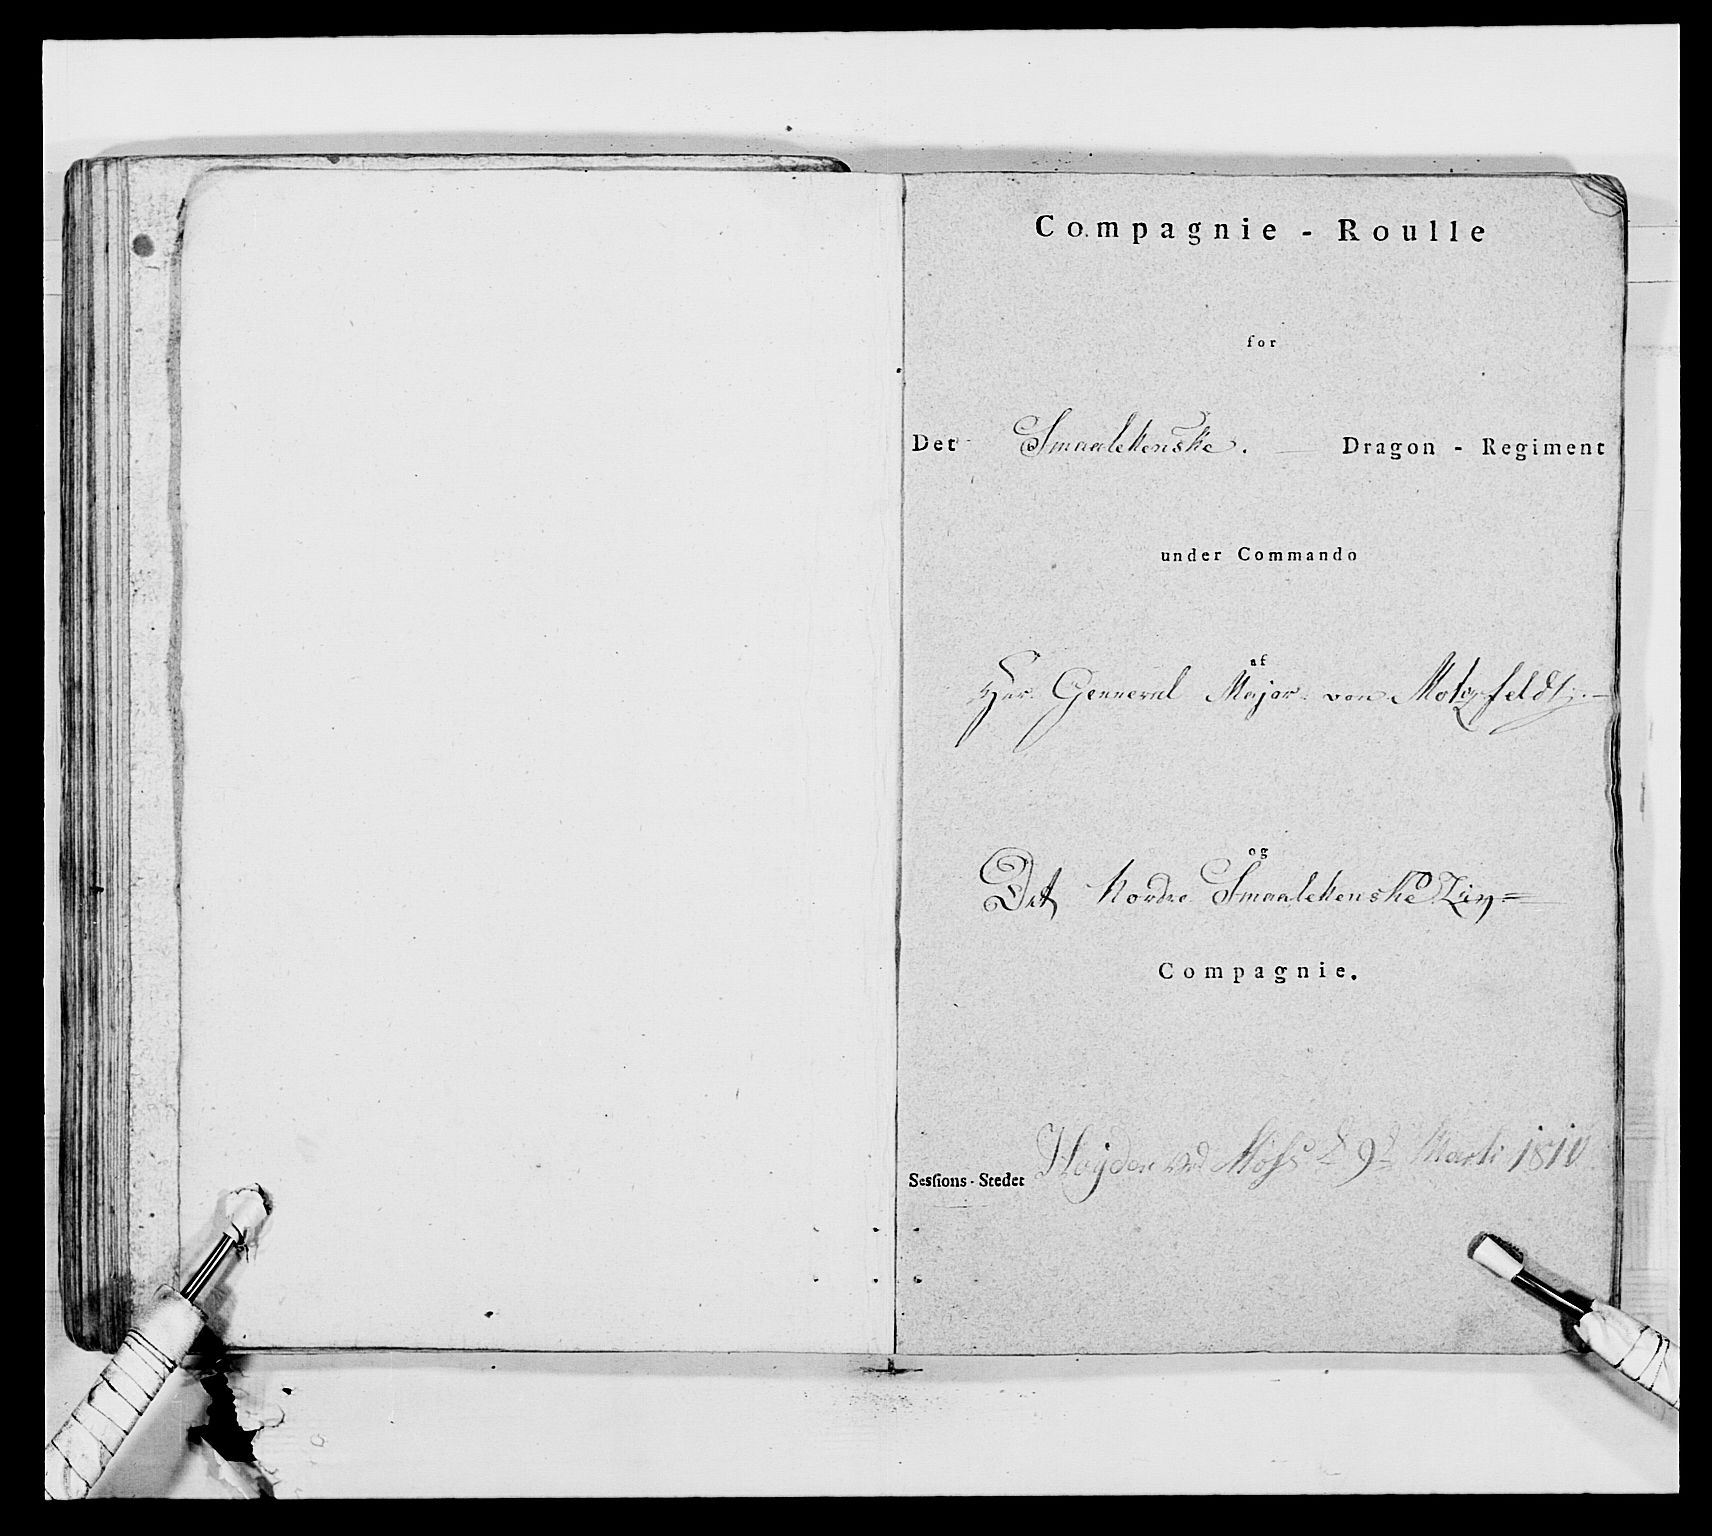 Compagnie - Roulle
for
Det Smaalehenske. Dragon - Regiment
under Commando
af
Her Genneral Major von Motzfeldt
og
Det Nordre Smaalehenske Liv=
Compagnie.
Sesſions-Stedet Høyden ved Moss d 9d Marti 1810